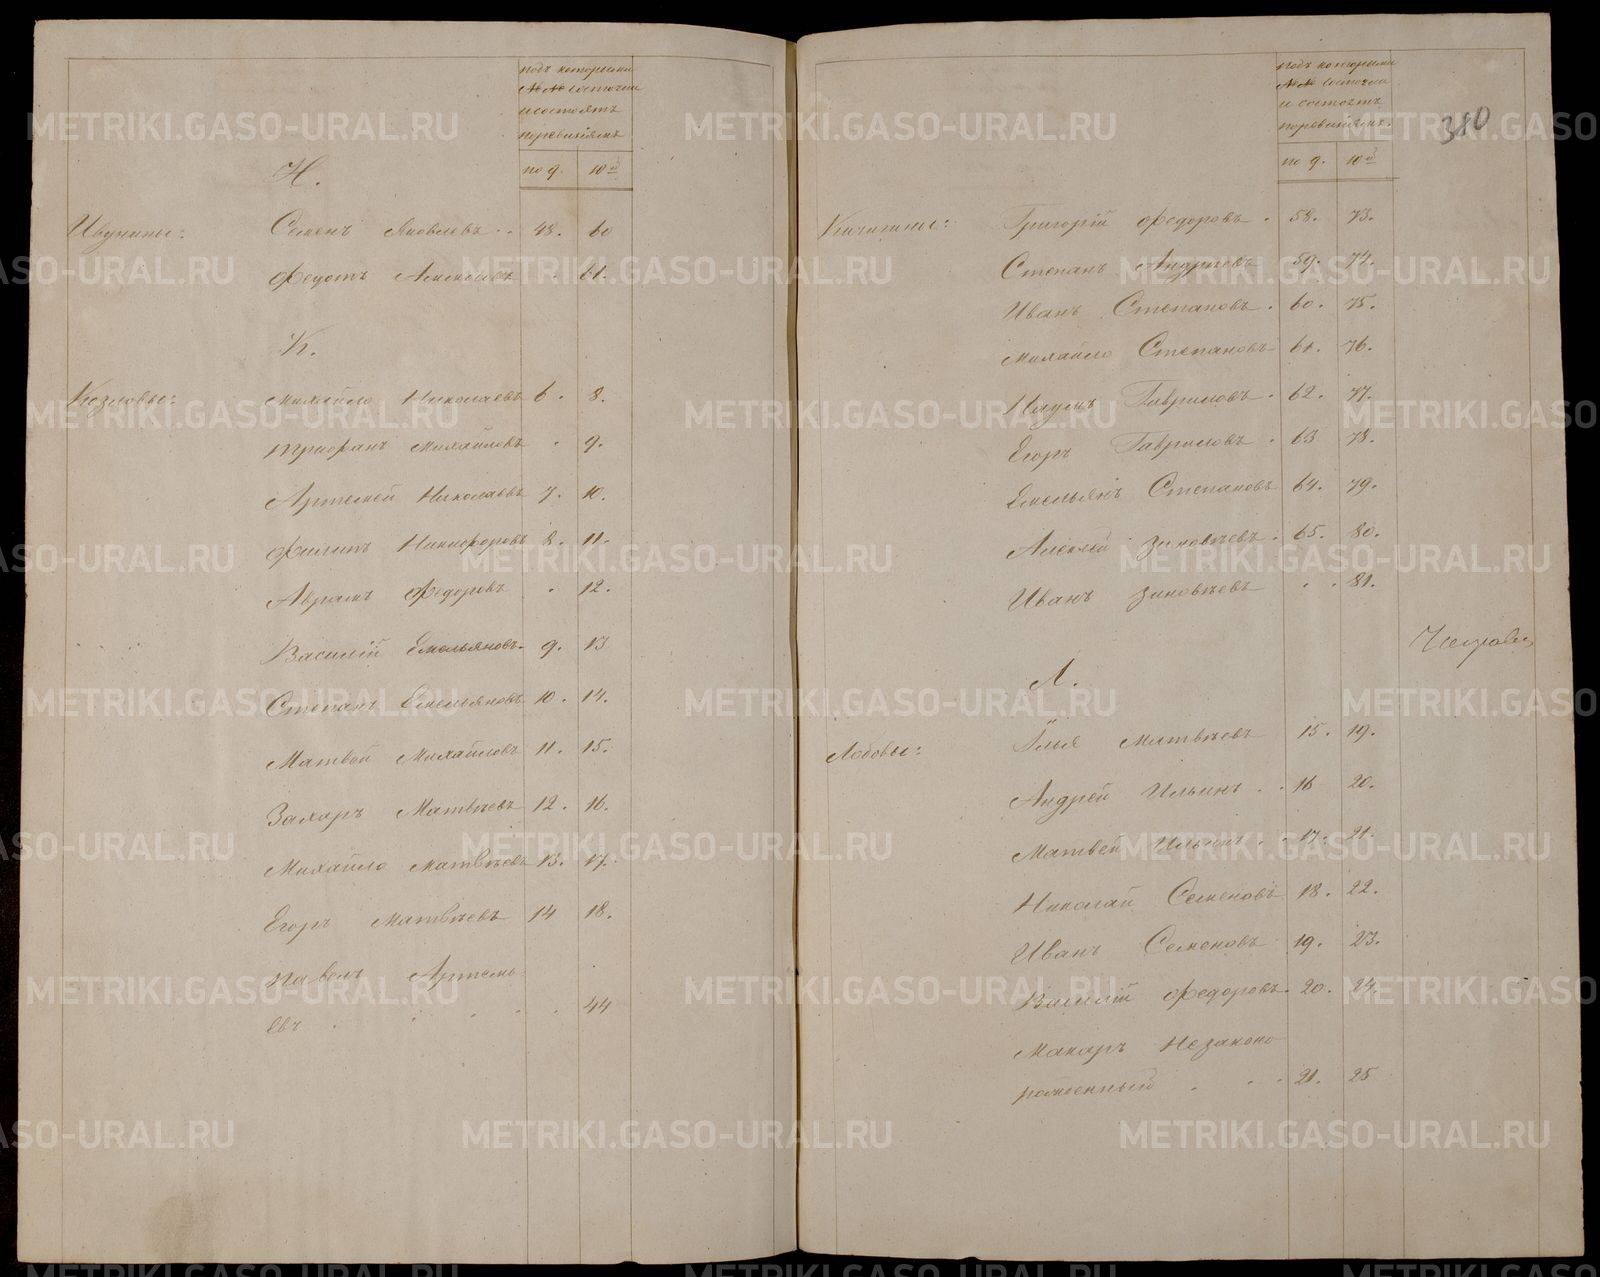 подъ которыми
№№ состояли
и состоятъ
по ревизіямъ
по 9. 10й
И.
Ивунины: Семенъ Яковлевъ . . 48. 60
Федотъ Алексѣевъ . 61.
К.
Козловы: Михайло Николаевъ 6. 8.
Трифонъ Михайловъ . 9.
Артемій Николаевъ 7. 10.
Филипъ Никифоровъ 8. 11.
Аврамъ Федоровъ . 12.
Василій Емельяновъ. 9. 13
Степанъ Емельяновъ 10. 14.
Матвѣй Михайловъ 11. 15.
Захаръ Матвѣевъ 12. 16.
Михайло Матвѣевъ 13. 17.
Егоръ Матвѣевъ 14 18.
Павелъ Артемь
евъ . . . . . 44
310
подъ которыми
№№ состояли
и состоятъ
по ревизіямъ.
по 9. 10й
Кичигины: Григорій Федоровъ . 58. 73.
Степанъ Андреевъ 59. 74.
Иванъ Степановъ . 60. 75.
Михайло Степановъ 61. 76.
Наумъ Гавриловъ . 62. 77.
Егоръ Гавриловъ . 63 78.
Емельянъ Степановъ 64. 79.
Алексѣй Зиновьевъ . 65. 80.
Иванъ Зиновьевъ . . 81.
Л.
Лобовы: Илья Матвѣевъ 15. 19.
Андрей Ильинъ . . 16 20.
Матвѣй Ильинъ . . 17. 21.
Николай Семеновъ 18. 22.
Иванъ Семеновъ 19. 23.
Василій Федоровъ. 20. 24.
Макаръ Незаконо
рожденный . . . 21. 25
METRIKI.GASO-URAL.RU